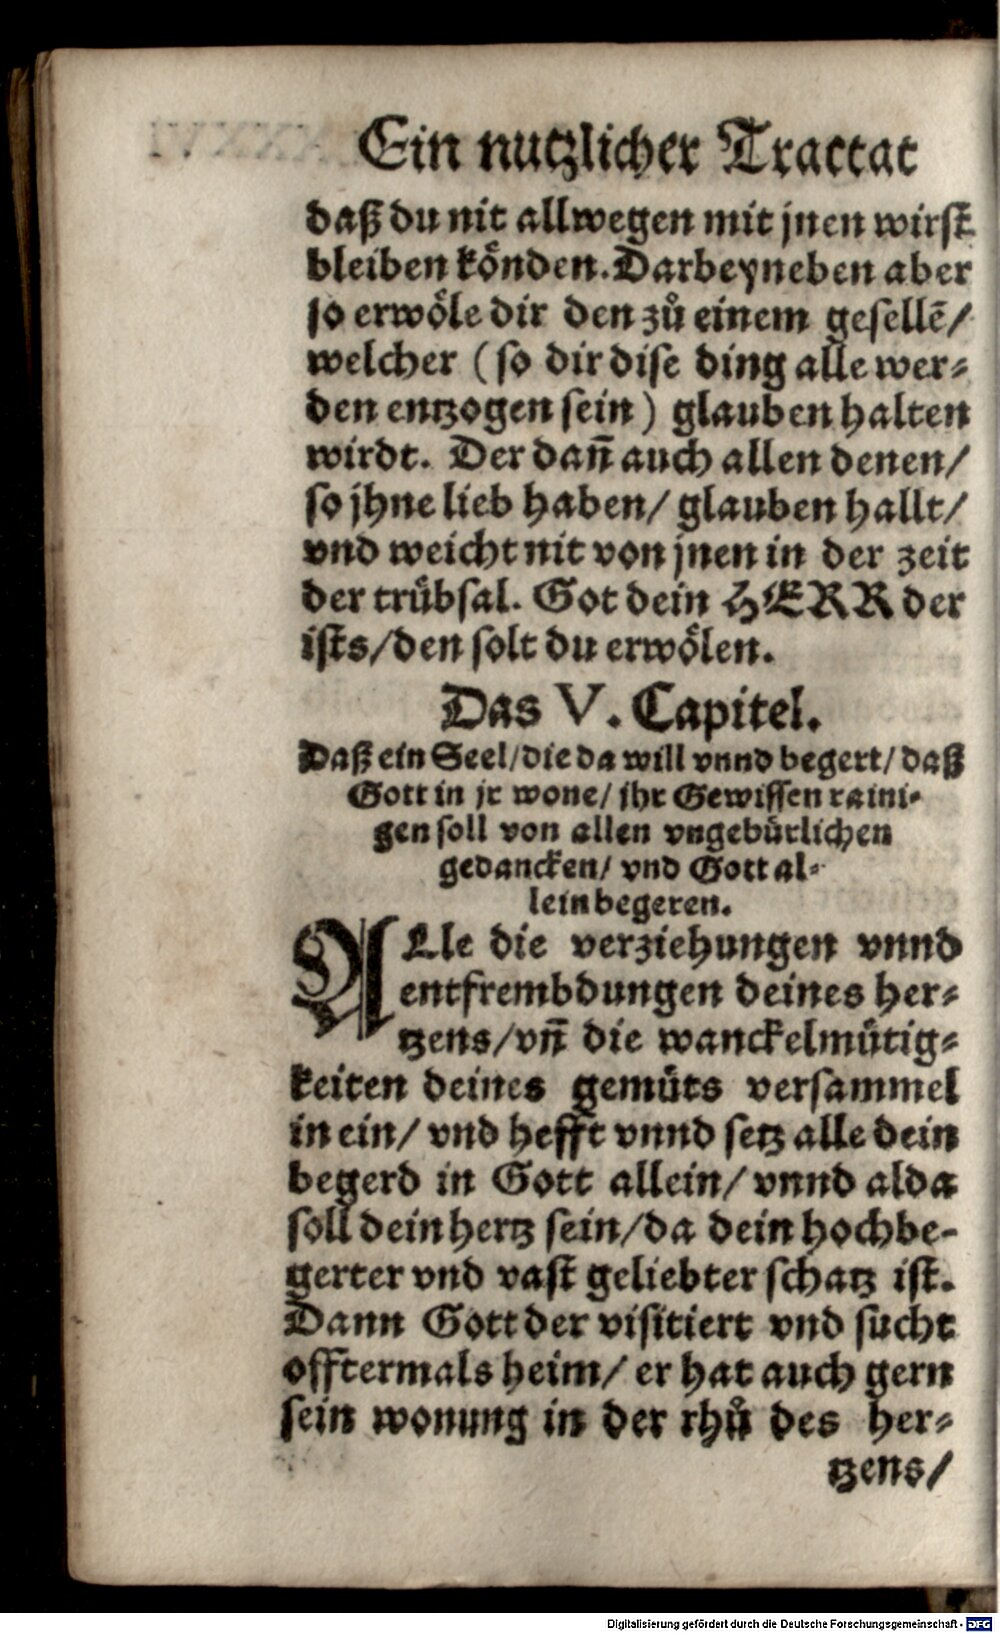 Ein nutzlicher Tractat
daß du nit allwegen mit jnen wirst
bleiben koͤnden. Darbeyneben aber
so erwoͤle dir den zuͦ einem gesellẽ/
welcher (so dir dise ding alle wer-
den entzogen sein) glauben halten
wirdt. Der dañ auch allen denen/
so jhne lieb haben/ glauben hallt/
vnd weicht nit von jnen in der zeit
der truͤbsal. Got dein HERR der
ists/ den solt du erwoͤlen.
Das V. Capitel.
Daß ein Seel/ die da will vnnd begert/ daß
Gott in jr wone/ ihr Gewissen raini-
gen soll von allen vngebuͤrlichen
gedancken/ vnd Gott al-
lein begeren.
ALle die verziehungen vnnd
entfrembdungen deines her-
tzens/ vñ die wanckelmuͤtig-
keiten deines gemuͤts versammel
in ein/ vnd hefft vnnd setz alle dein
begerd in Gott allein/ vnnd alda
soll dein hertz sein/ da dein hochbe-
gerter vnd vast geliebter schatz ist.
Dann Gott der visitiert vnd sucht
offtermals heim/ er hat auch gern
sein wonung in der rhuͦ des her-
tzens/
Digitalisierung gefördert durch die Deutsche Forschungsgemeinschaft - DFG